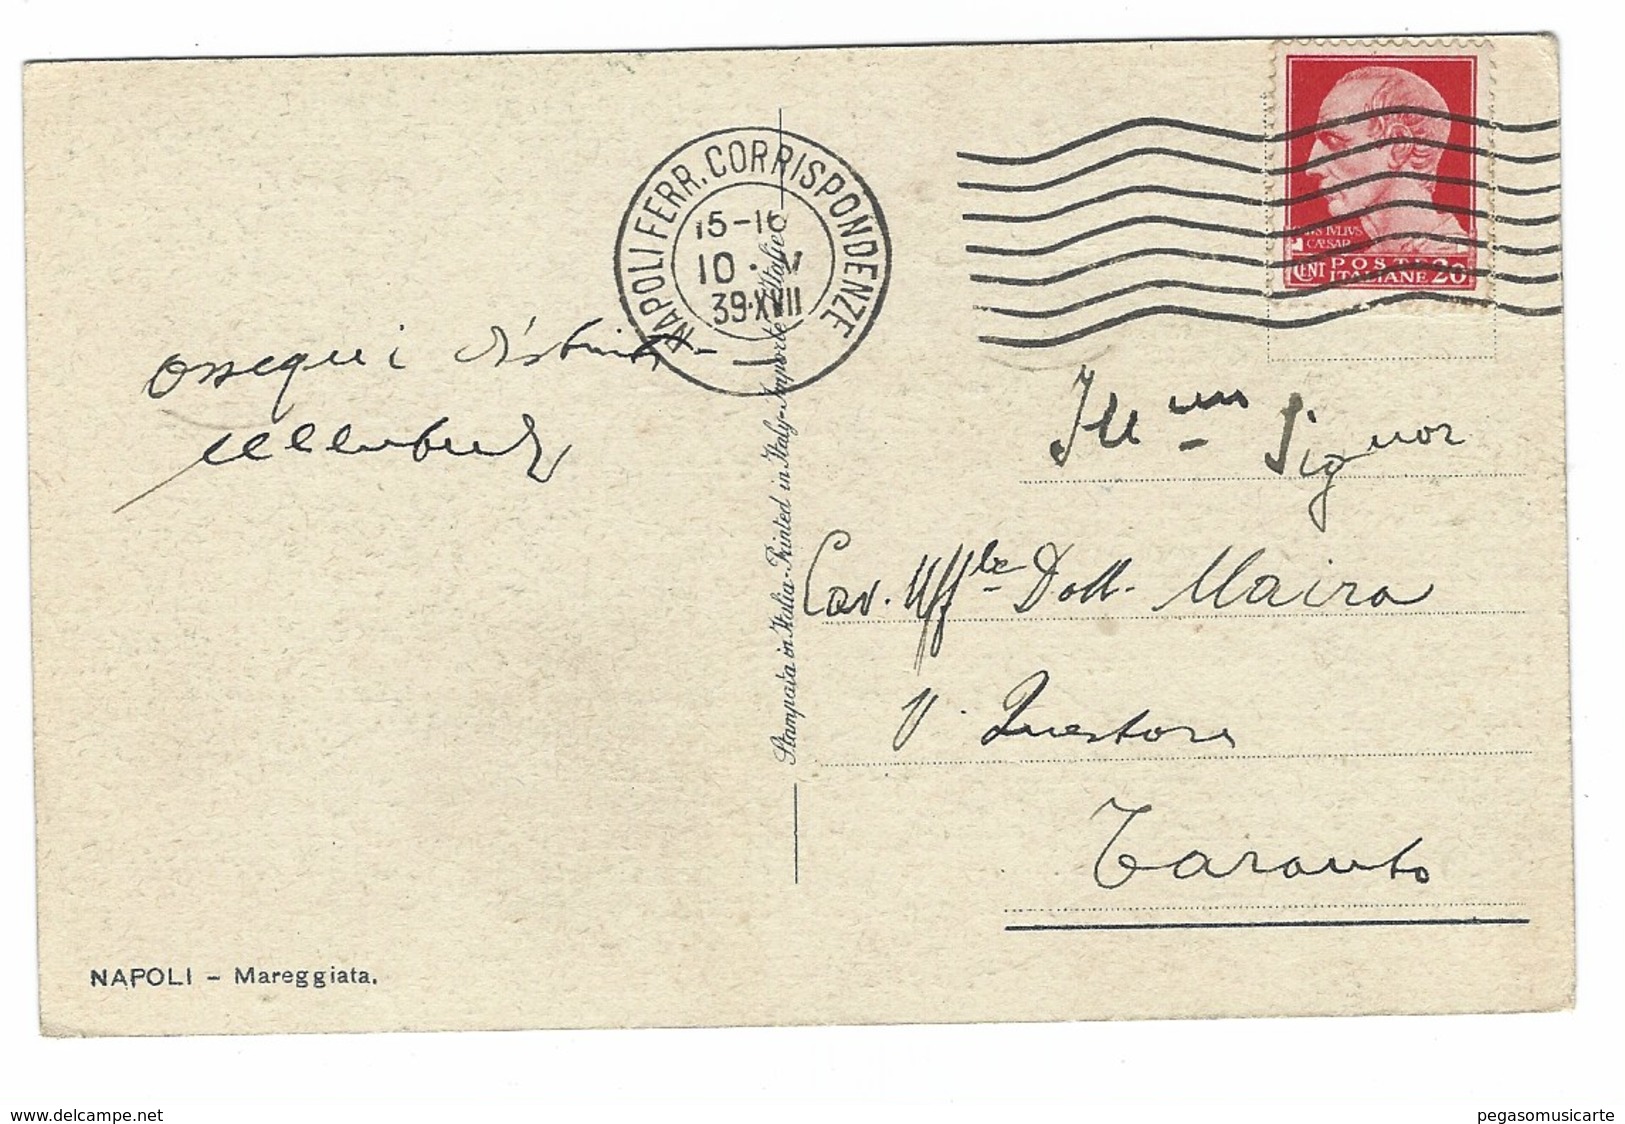 NAPOLI FERR. CORRISPONDENZE
15-16
10 · V
39·XVII
IVLIVS
CÆSAR
CENT POSTE 20
ITALIANE
Ossequi distinti
Ill.mo Signor
Cav. Uff.le Dott. Maira
V. Questore
Taranto
Stampata in Italia-Printed in Italy-Importé d'Italie
NAPOLI – Mareggiata.
www.delcampe.net
pegasomusicarte